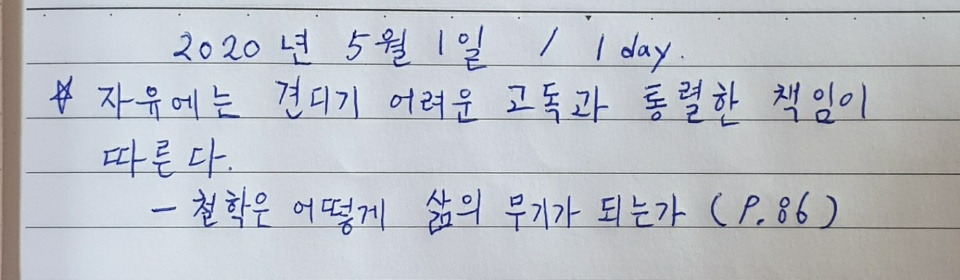 2020년 5월 1일 / 1day.
☆ 자유에는 견디기 어려운 고독과 통렬한 책임이
따른다.
- 철학은 어떻게 삶의 무기가 되는가 (P.86)